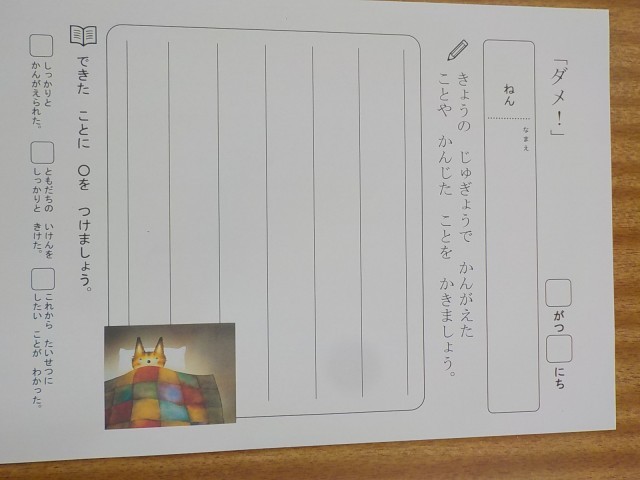 「ダメ！」
がつ にち
ねん
なまえ
きょうの じゅぎょうで かんがえた
ことや かんじた ことを かきましょう。
できた ことに 〇を つけましょう。
しっかりと
かんがえられた。
ともだちの いけんを
しっかりと きけた。
これから たいせつに
したい ことが わかった。